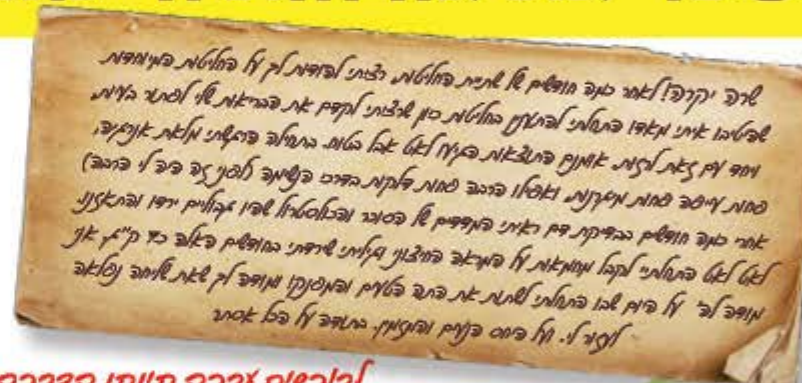 שרה יקרה! לאחר כמה חודשים של שתיית החליטות רציתי להודות לך על החליטות המיוחדות
שהטיבו איתי מאוד! התחלתי להתענין בחליטות כיון שרציתי לקדם את הבריאות שלי לפתור בעיות
ויחד עם זאת לרזות. אומנם התוצאות הגיעו לאט אבל בטוח. בתחילה הרגשתי מלאת אנרגיה,
פחות עייפה פחות מצוננת ואפילו הרבה פחות דלקות בדרכי הנשימה (לפני זה היה לי הרבה)
אחרי כמה חודשים בבדיקת דם ראיתי המדדים של הסוכר והכולסטרול שהיו גבוליים ירדו והתאזנו
לאט לאט התחלתי לקבל מחמאות על המראה החיצוני וגיליתי שירדתי בחודשים האלה כך ק"ג. אני
מודה לה' על היום שבו התחלתי לשתות את התה הטעים והמפנק! ומודה לך שאת שליחה נפלאה
לעזור לי. ועל היחס הנעים והמזמין. בתודה על הכל אסתר